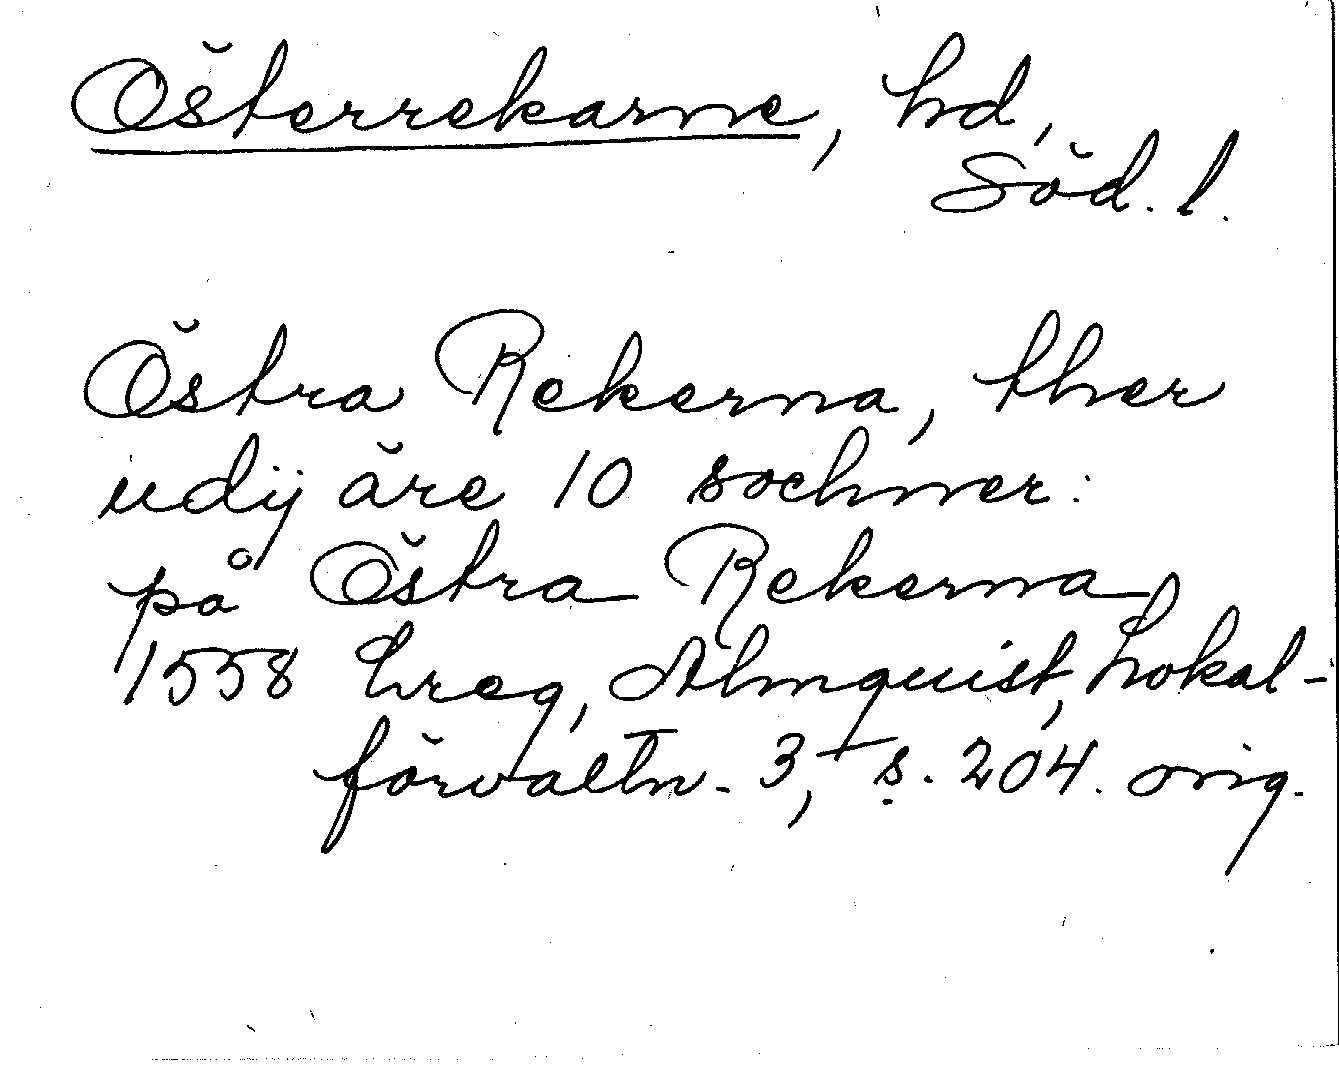 Österrekarne, hd,
Söd. l.
Östra Rekerna, ther
udij äre 10 sochner:
på Östra Rekerna
1558 Lreg, Almquist, Lokal-
förvaltn. 3, s. 204. orig.